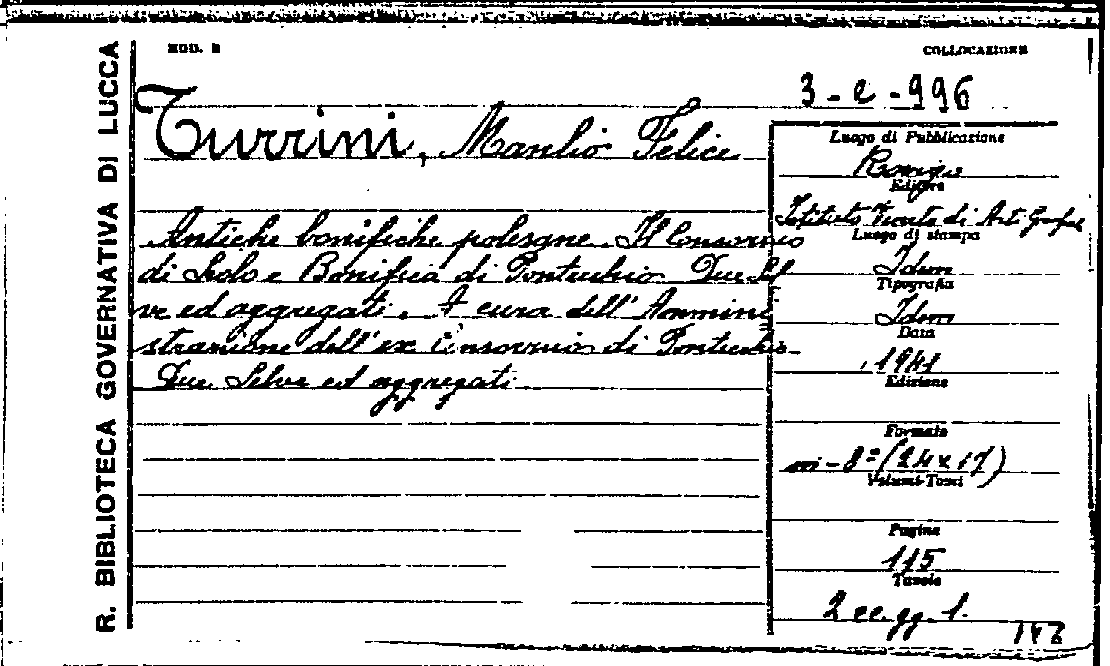 R. BIBLIOTECA GOVERNATIVA DI LUCCA
MOD. B
COLLOCAZIONE
3-e-996
Turrini, Manlio Felice
Antiche bonifiche polesane. Il Consorzio
di Scolo e Bonifica di Pontecchio Due Sel
ve ed aggregati. A cura dell'Ammini
strazione dell'ex Consorzio di Pontecchio
Due Selve ed aggregati.
Luogo di Pubblicazione
Rovigo
Editore
Istituto Veneto di Arti Grafiche
Luogo di stampa
Idem
Tipografia
Idem
Data
1941
Edizione
Formato
in-8º (24x17)
Volumi-Tomi
Pagine
115
Tavole
2 cc. gg. 1.